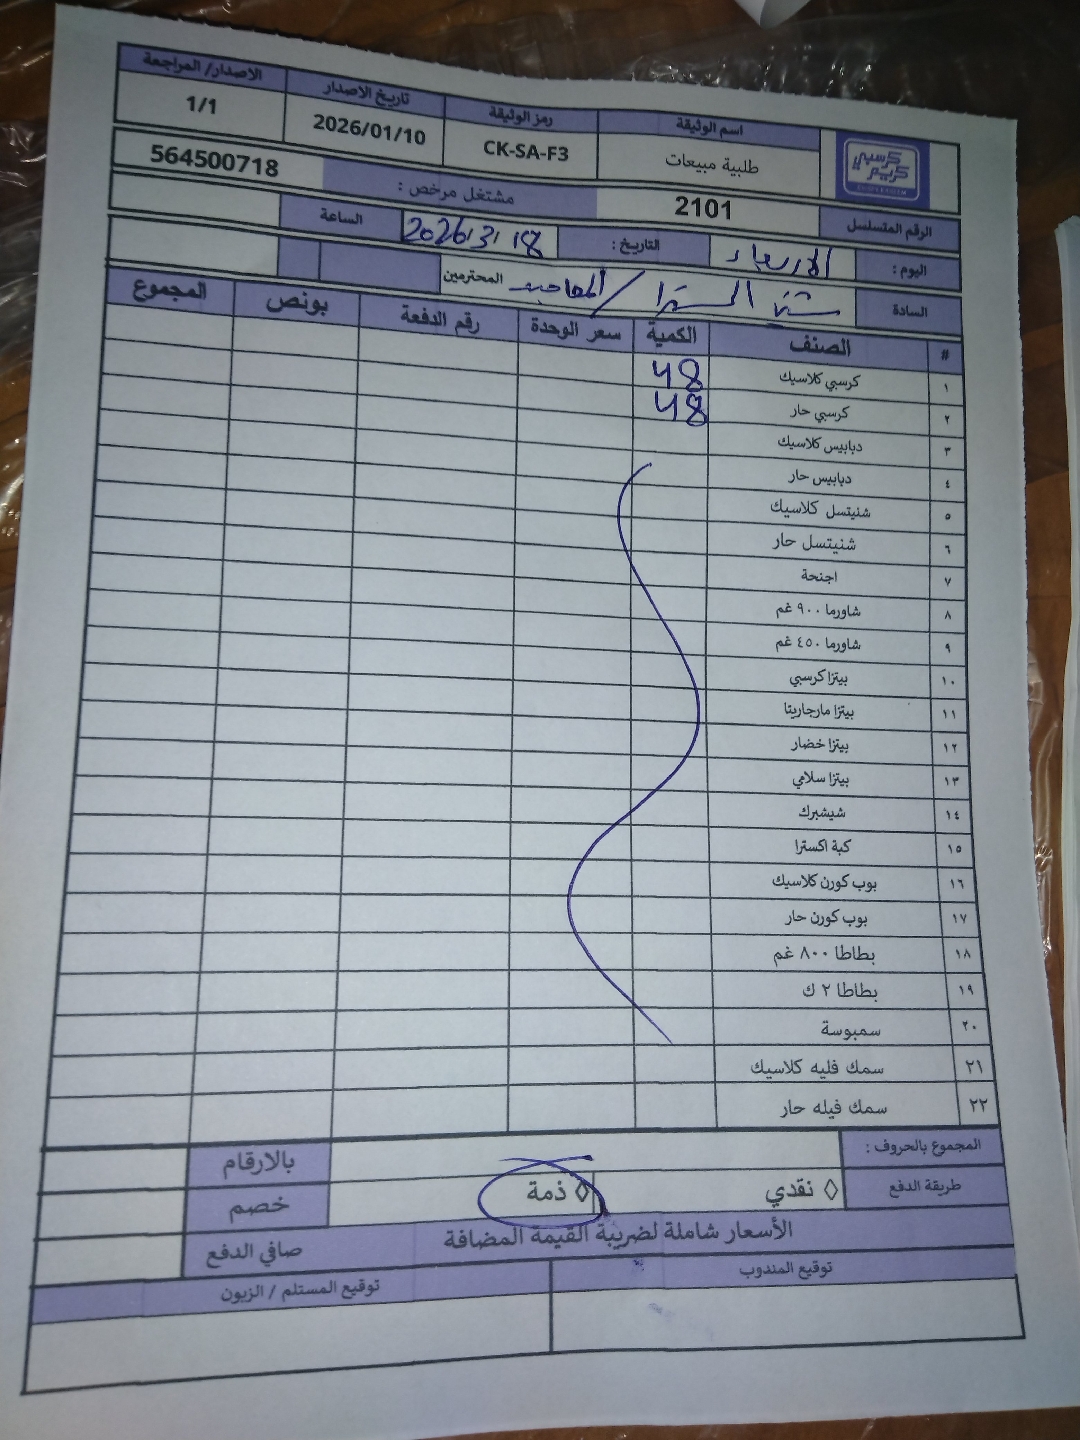 اسم الوثيقة رمز الوثيقة تاريخ الاصدار الاصدار/ المراجعة
كرسبي كريم
طلبية مبيعات CK-SA-F3 2026/01/10 1/1
الرقم المتسلسل 2101 مشتغل مرخص : 564500718
اليوم : الاربعاء التاريخ : 2026/3/18 الساعة
السادة / المحترمين
# الصنف الكمية سعر الوحدة رقم الدفعة بونص المجموع
١ كرسبي كلاسيك 48
٢ كرسبي حار 48
٣ دبابيس كلاسيك
٤ دبابيس حار
٥ شنيتسل كلاسيك
٦ شنيتسل حار
٧ اجنحة
٨ شاورما ٩٠٠ غم
٩ شاورما ٤٥٠ غم
١٠ بيتزا كرسبي
١١ بيتزا مارجاريتا
١٢ بيتزا خضار
١٣ بيتزا سلامي
١٤ شيشبرك
١٥ كبة اكسترا
١٦ بوب كورن كلاسيك
١٧ بوب كورن حار
١٨ بطاطا ٨٠٠ غم
١٩ بطاطا ٢ ك
٢٠ سمبوسة
٢١ سمك فليه كلاسيك
٢٢ سمك فيله حار
المجموع بالحروف : بالارقام
طريقة الدفع ◊ نقدي ◊ ذمة خصم
الأسعار شاملة لضريبة القيمة المضافة صافي الدفع
توقيع المندوب توقيع المستلم / الزبون